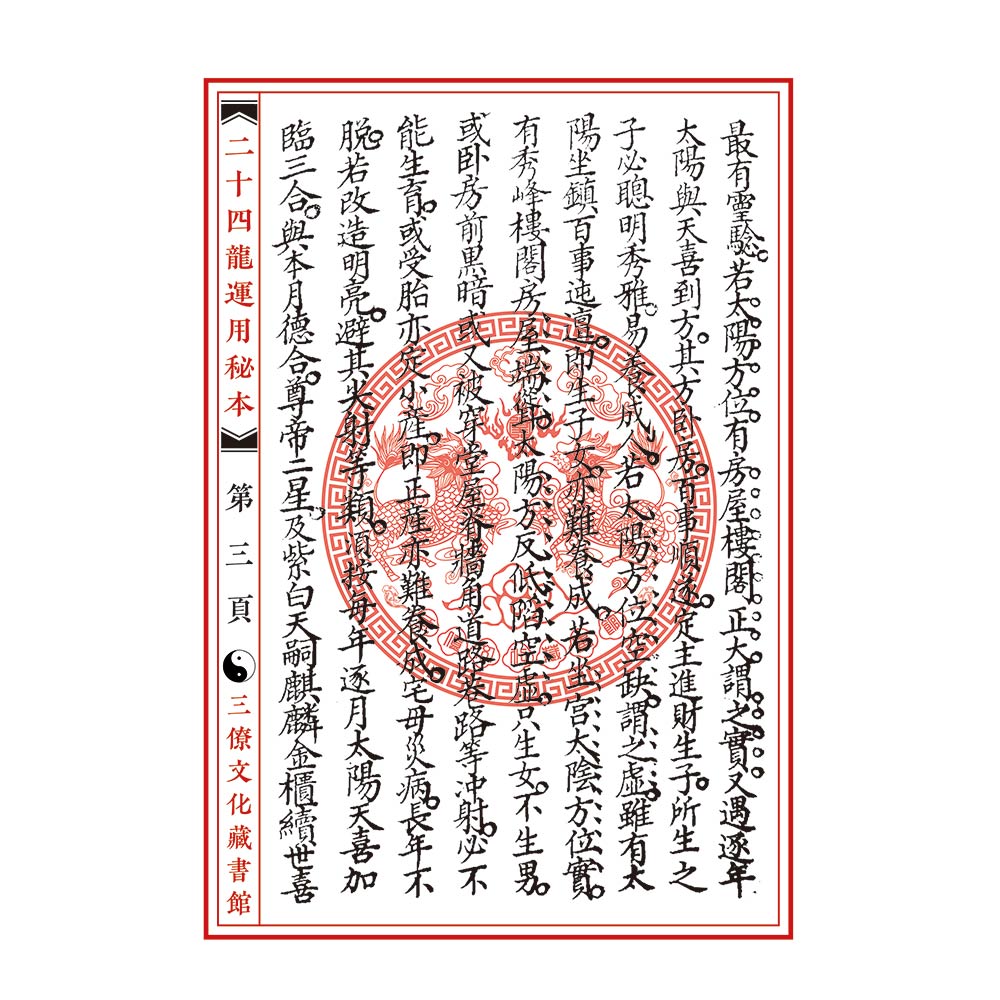 最有靈驗。若太陽方位。有房屋樓閣。正大謂之實。又遇逐年
太陽與天喜到方。其方卧房。百事順遂。定主進財生子。所生之
子必聰明秀雅。易養成人。若太陽方位空缺。謂之虛。雖有太
陽坐鎮。百事迍邅。即生子女。亦難養成。若坐宮太陰方位實。
有秀峰樓閣房屋端聳。太陽方反低陷空虛。只生女。不生男。
或卧房前黑暗。或又被穿堂屋脊牆角道路巷路等冲射。必不
能生育。或受胎亦定小產。即正產亦難養成。宅母災病。長年不
脫。若改造明亮。避其尖射等類。須按每年逐月太陽天喜加
臨三合。與本月德合。尊帝二星。及紫白天嗣麒麟金櫃續世喜
二十四龍運用秘本
第三頁
三僚文化藏書館